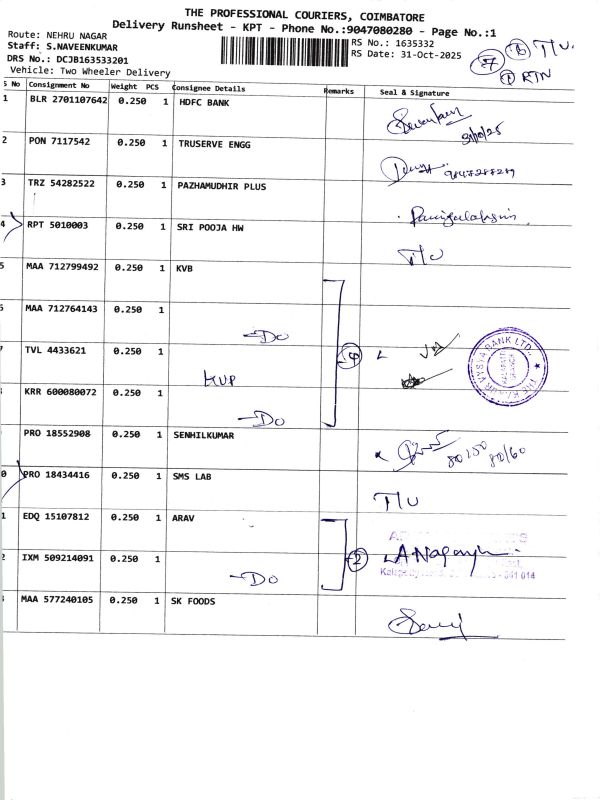 THE PROFESSIONAL COURIERS, COIMBATORE
Delivery Runsheet - KPT - Phone No.:9047080280 - Page No.:1
Route: NEHRU NAGAR
Staff: S.NAVEENKUMAR
DRS No.: DCJB163533201
Vehicle: Two Wheeler Delivery
RS No.: 1635332
RS Date: 31-Oct-2025
7 T/U
1 RTN
S No Consignment No Weight PCS Consignee Details Remarks Seal & Signature
1 BLR 2701107642 0.250 1 HDFC BANK
31/10/25
2 PON 7117542 0.250 1 TRUSERVE ENGG
3 TRZ 54282522 0.250 1 PAZHAMUDHIR PLUS
4 RPT 5010003 0.250 1 SRI POOJA HW T/U
5 MAA 712799492 0.250 1 KVB
6 MAA 712764143 0.250 1 -Do
7 TVL 4433621 0.250 1 KVB 4
THE KARUR VYSYA BANK LTD.,
KRR 600080072 0.250 1 -Do
PRO 18552908 0.250 1 SENHILKUMAR
0 PRO 18434416 0.250 1 SMS LAB T/U
1 EDQ 15107812 0.250 1 ARAV
2 IXM 509214091 0.250 1 -Do 2
641 014
MAA 577240105 0.250 1 SK FOODS